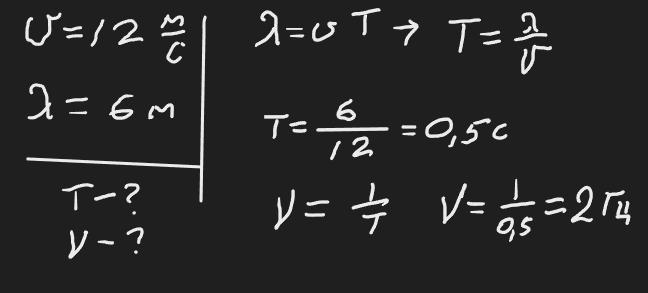 υ=12 м/с
λ = 6 м
T-?
ν-?
λ=υT → T=λ/υ
T=6/12=0,5с
ν=1/T ν=1/0,5=2Гц